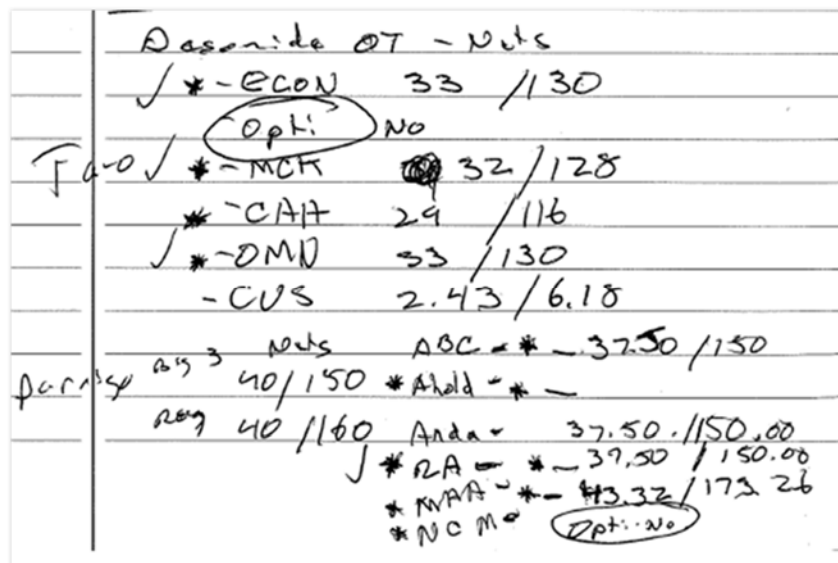 Desonide OT - Nets
✓ * - ECON 33 /130
Opti No
✓ * - MCK 32 /128
* - CAH 29 /116
✓ * - OMN 33 /130
- CVS 2.43 / 6.18
Big 3 Nets ABC - * - 37.50 /150
40/150 * Ahold - * -
Reg 40 /160 Anda - 37.50 /150.00
✓ * RA - * - 37.50 / 150.00
* - * - 43.32 / 173.26
* NCM - Opti-No